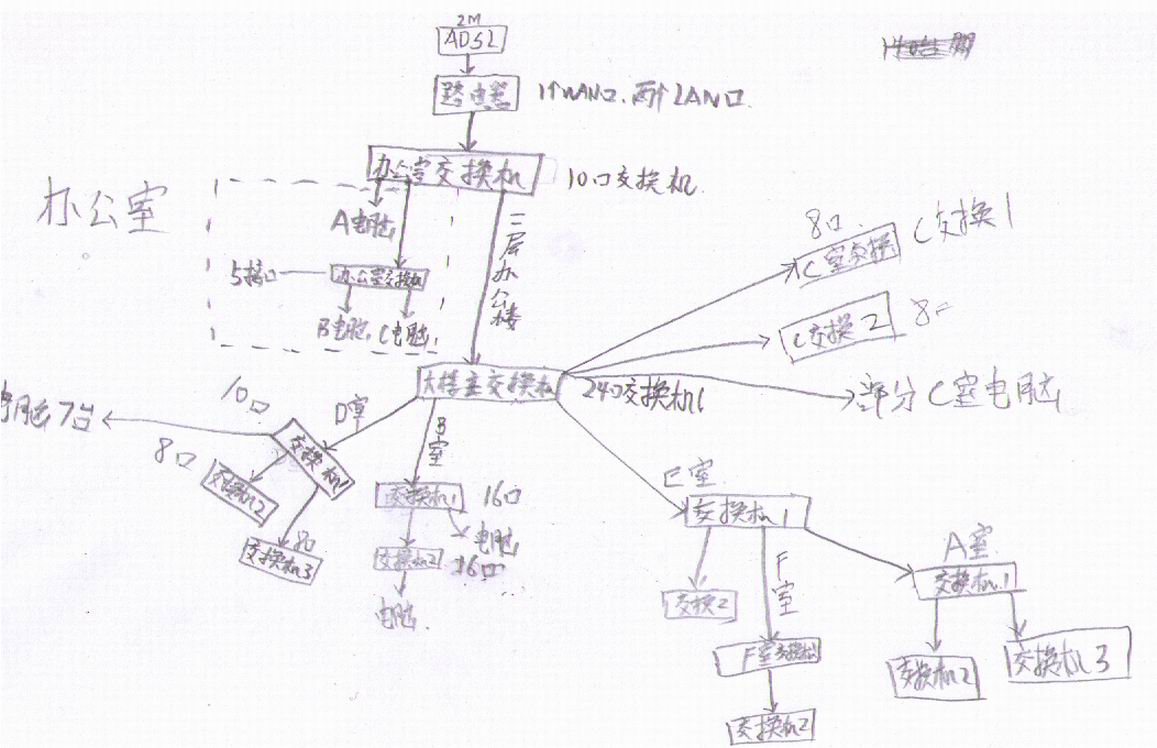 2M
ADSL
路由器
1个WAN口. 两个LAN口
办公室交换机
10口交换机
办公室
A电脑
5接口
办公室交换机
B电脑. C电脑
二层办公楼
8口
C室交换
C交换1
C交换2
8口
大楼主交换机
24口交换机1
部分C室电脑
10口
D室
电脑7台
交换机1
8口
交换机2
8口
交换机3
B室
交换机1
16口
电脑
交换机2
16口
电脑
E室
交换机1
交换2
F室
F室交换机1
交换机2
A室
交换机1
交换机2
交换机3